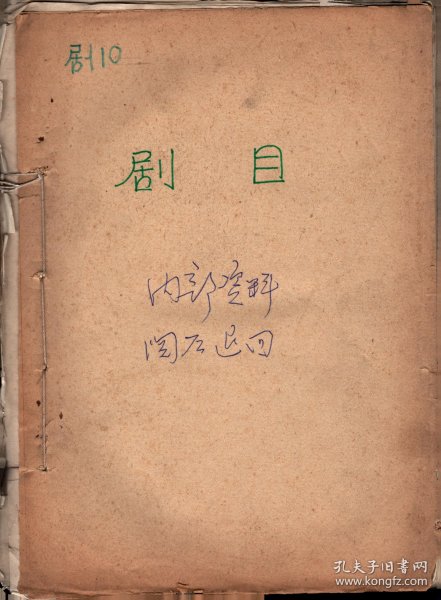 剧10
剧 目
内部资料
阅后退回
孔夫子旧书网
www.kongfz.com